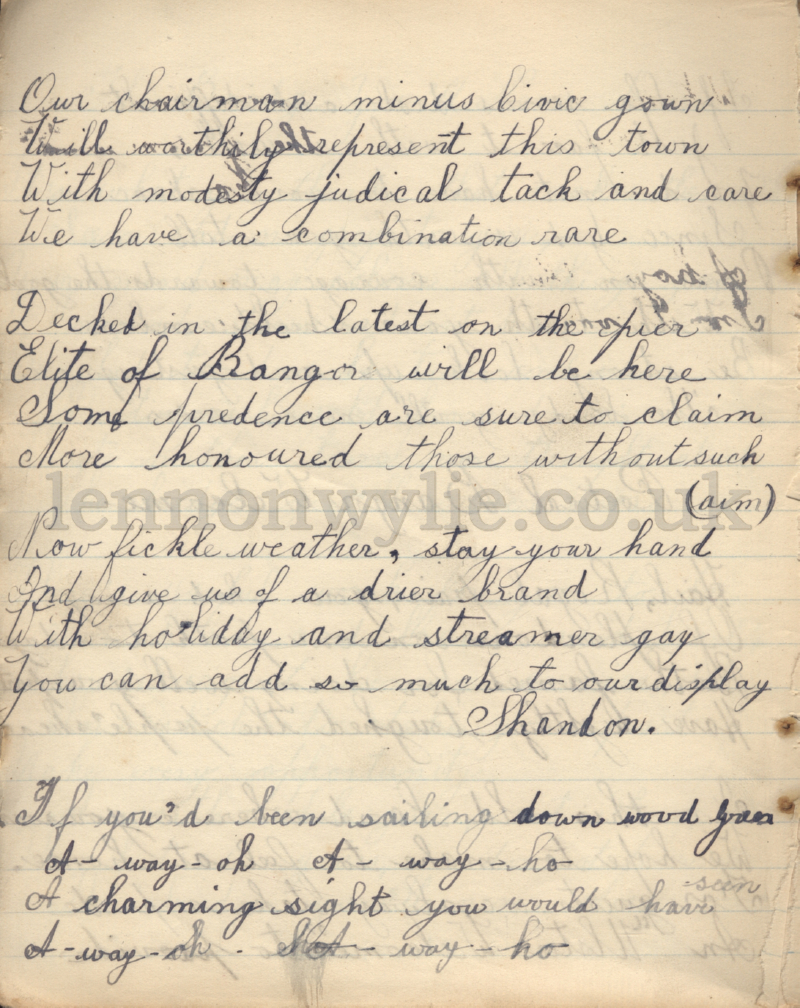 Our chairman minus Civic gown
Will worthily represent this town
With modesty judical tack and care
We have a combination rare
Decked in the latest on the pier
Elite of Bangor will be here
Some predence are sure to claim
More honoured those without such
(aim)
lennonwylie.co.uk
Now fickle weather, stay your hand
And give us of a drier brand
With holiday and streamer gay
You can add so much to our display
Shandon.
If you'd been sailing down wood
A-way-oh A-way-ho
seen
A charming sight you would have
A-way-oh. A-way-ho